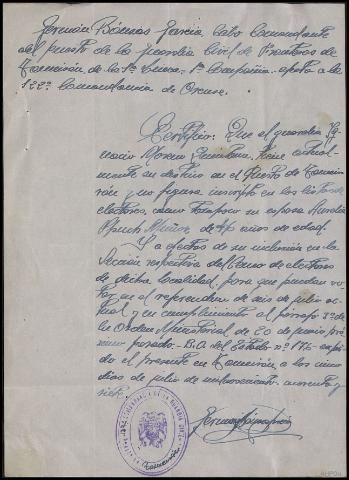 Germán Róginas García Cabo Comandante
del puesto de la Guardia Civil de Fronteras de
Tameirón, de la 1ª Línea, 1ª Compañía, afecto a la
122ª Comandancia de Orense.
Certifico: Que el guardia Ig-
nacio Moreno Quintana, tiene actual-
mente su destino en el Puesto de Tamei-
rón y no figura inscrito en las listas de
electores, como tampoco su esposa Aurelia
Muñoz, de 47 años de edad.
Y a efectos de su inclusión en la
Sección respectiva del Censo de electores
de dicha localidad, para que puedan vo-
tar en el referendum de seis de julio ac-
tual y en cumplimiento al párrafo 3º de
la Orden Ministerial de 20 de junio pró-
ximo pasado - B.O. del Estado nº 176 - expi-
do el presente en Tameirón a los uno
días de julio de mil novecientos cuarenta y
siete.
AHPOu